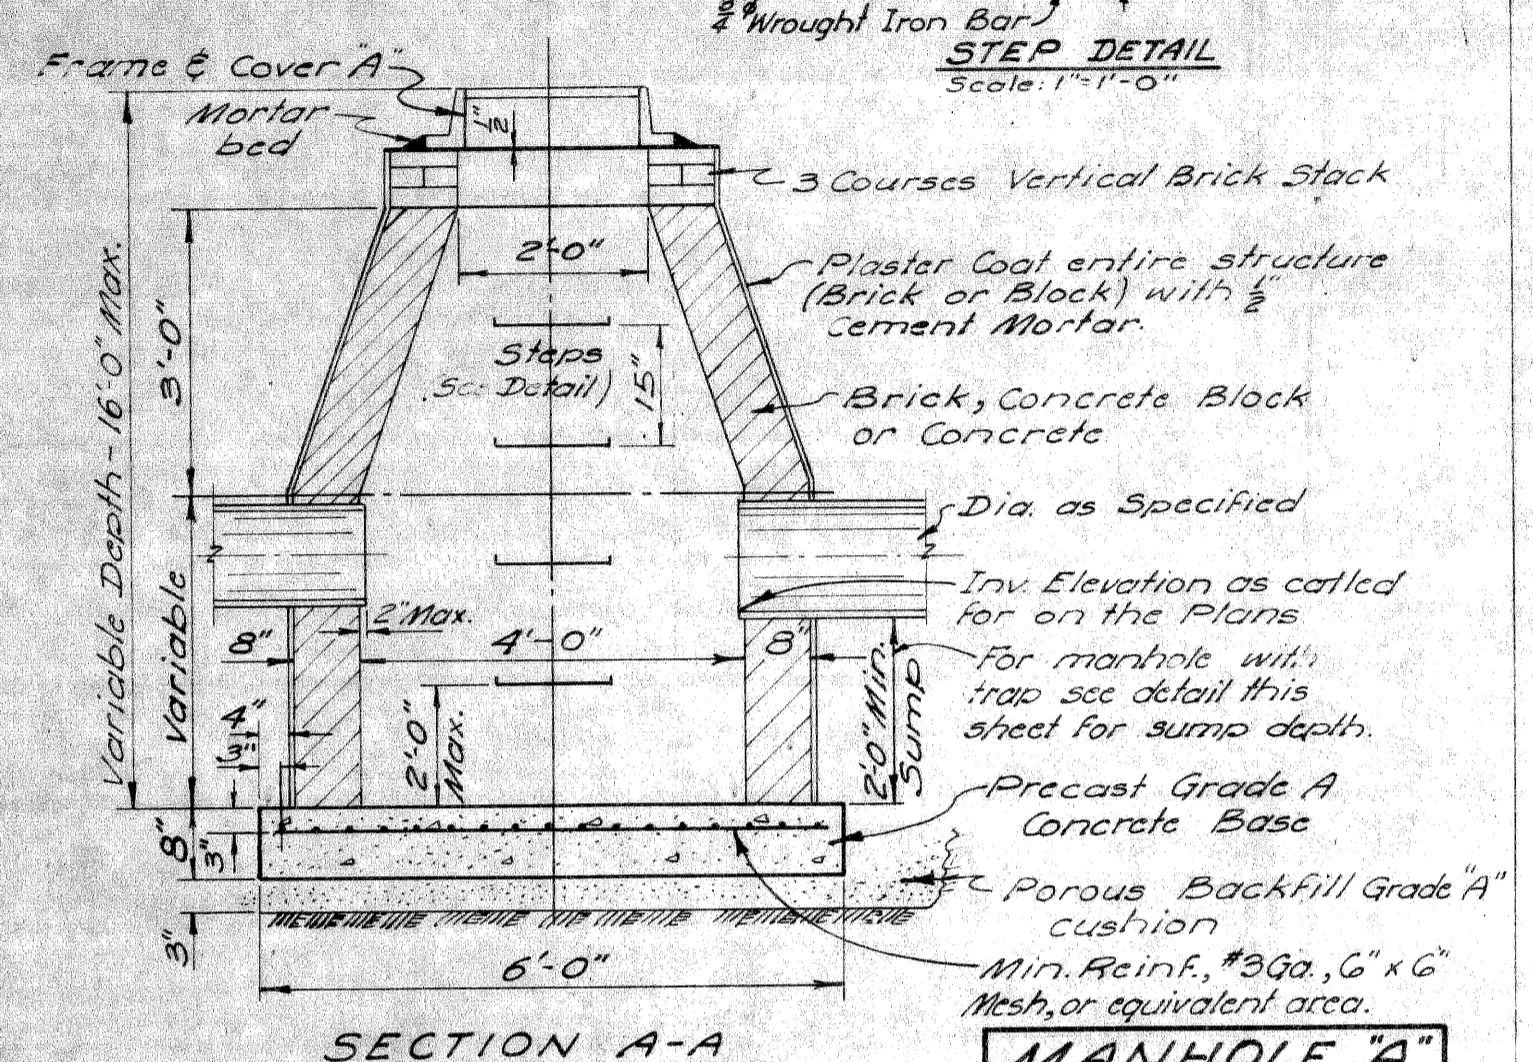 3/4"ø Wrought Iron Bar
STEP DETAIL
Scale: 1"=1'-0"
Frame & Cover "A"
Mortar
bed
1/2"
3 Courses Vertical Brick Stack
2'-0"
Plaster Coat entire structure
(Brick or Block) with 1/2"
Cement Mortar.
Variable Depth - 16'-0" Max.
3'-0"
Steps
See Detail)
15"
Brick, Concrete Block
or Concrete
Dia. as Specified
Inv. Elevation as called
for on the Plans
Variable
2" Max.
8"
4'-0"
8"
For manhole with
trap see detail this
sheet for sump depth.
4"
3"
2'-0"
Max.
2'-0" Min.
Sump
Precast Grade A
Concrete Base
8"
3"
Porous Backfill Grade "A"
cushion
3"
6'-0"
Min. Reinf., #3Ga., 6" x 6"
Mesh, or equivalent area.
SECTION A-A
MANHOLE "A"